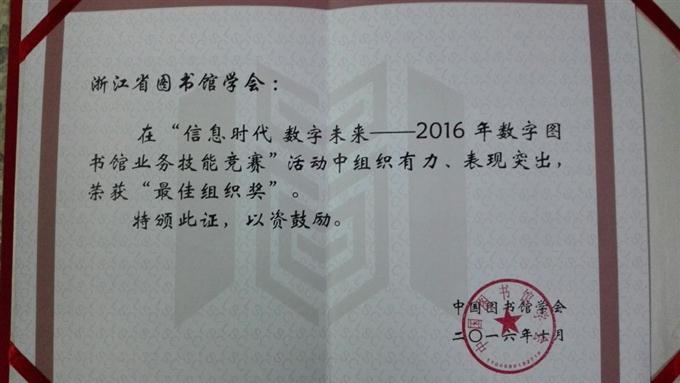 浙江省图书馆学会：
在“信息时代 数字未来——2016 年数字图
书馆业务技能竞赛”活动中组织有力、表现突出，
荣获“最佳组织奖”。
特颁此证，以资鼓励。
中国图书馆学会
二〇一六年十月
中国图书馆学会